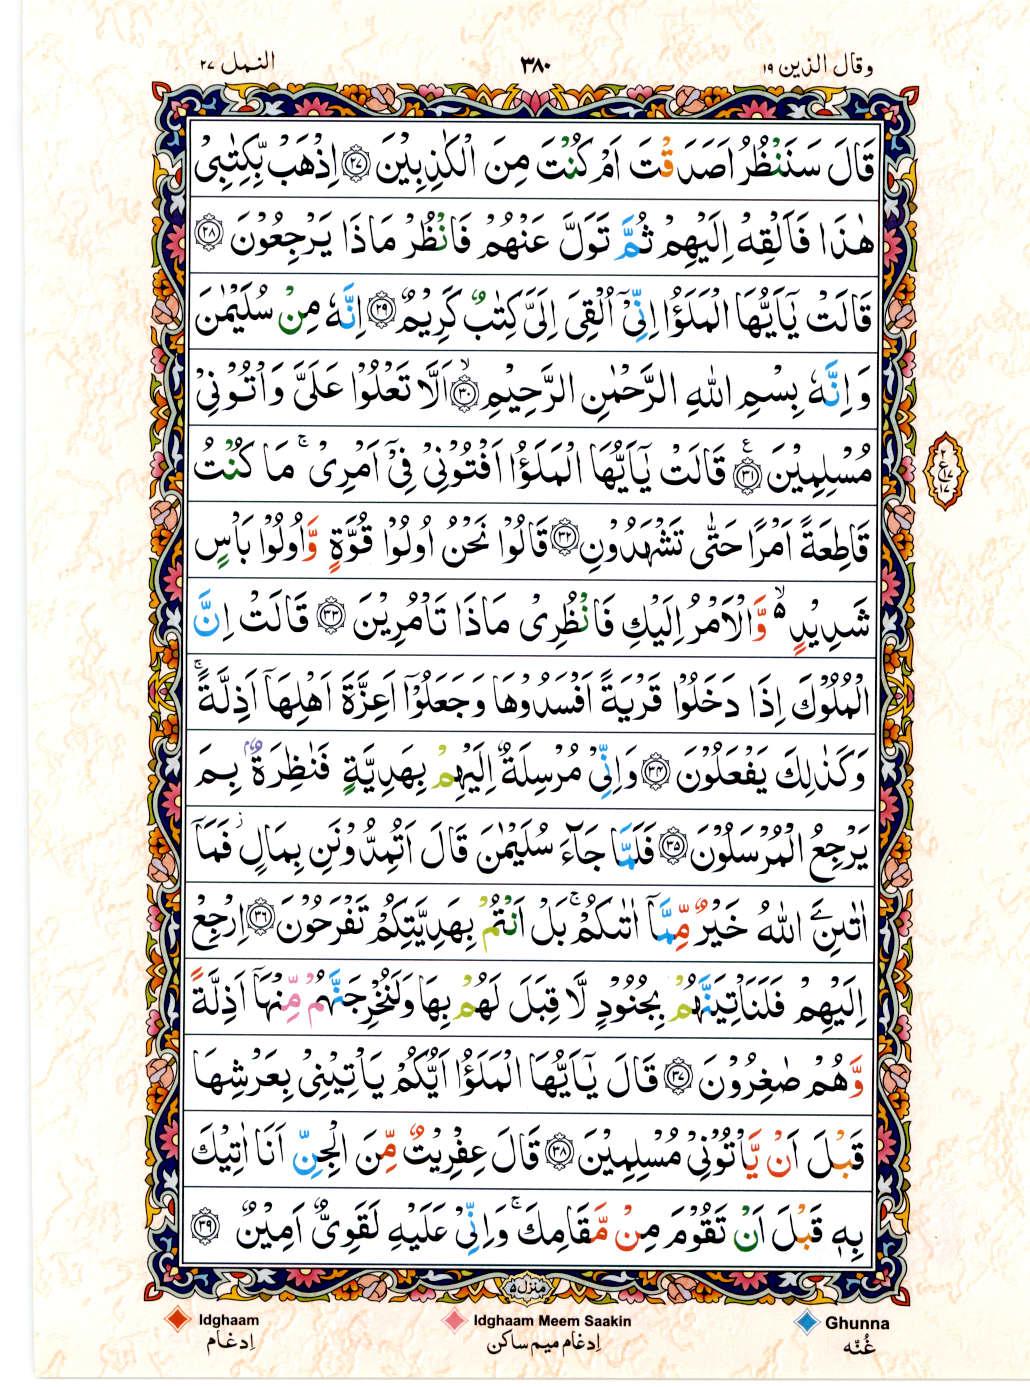 وقال الذين ١٩
٣٨٠
النمل ٢٧
قَالَ سَنَنْظُرُ اَصَدَقْتَ اَمْ كُنْتَ مِنَ الْكٰذِبِيْنَ ﴿٢٧﴾ اِذْهَبْ بِّكِتٰبِىْ
هٰذَا فَاَلْقِهْ اِلَيْهِمْ ثُمَّ تَوَلَّ عَنْهُمْ فَانْظُرْ مَاذَا يَرْجِعُوْنَ ﴿٢٨﴾
قَالَتْ يٰۤاَيُّهَا الْمَلَؤُا اِنِّىْۤ اُلْقِىَ اِلَىَّ كِتٰبٌ كَرِيْمٌ ﴿٢٩﴾ اِنَّهٗ مِنْ سُلَيْمٰنَ
وَاِنَّهٗ بِسْمِ اللّٰهِ الرَّحْمٰنِ الرَّحِيْمِ ﴿٣٠﴾ۙ اَلَّا تَعْلُوْا عَلَىَّ وَاْتُوْنِىْ
مُسْلِمِيْنَ ﴿٣١﴾ع قَالَتْ يٰۤاَيُّهَا الْمَلَؤُا اَفْتُوْنِىْ فِىْۤ اَمْرِىْ ۚ مَا كُنْتُ
قَاطِعَةً اَمْرًا حَتّٰى تَشْهَدُوْنِ ﴿٣٢﴾ قَالُوْا نَحْنُ اُولُوْا قُوَّةٍ وَّاُولُوْا بَاْسٍ
شَدِيْدٍ ۙ۬ وَّالْاَمْرُ اِلَيْكِ فَانْظُرِىْ مَاذَا تَاْمُرِيْنَ ﴿٣٣﴾ قَالَتْ اِنَّ
الْمُلُوْكَ اِذَا دَخَلُوْا قَرْيَةً اَفْسَدُوْهَا وَجَعَلُوْۤا اَعِزَّةَ اَهْلِهَاۤ اَذِلَّةً ۚ
وَكَذٰلِكَ يَفْعَلُوْنَ ﴿٣٤﴾ وَاِنِّىْ مُرْسِلَةٌ اِلَيْهِمْ بِهَدِيَّةٍ فَنٰظِرَةٌۢ بِمَ
يَرْجِعُ الْمُرْسَلُوْنَ ﴿٣٥﴾ فَلَمَّا جَآءَ سُلَيْمٰنَ قَالَ اَتُمِدُّوْنَنِ بِمَالٍ ۫ فَمَاۤ
اٰتٰىنِۦَ اللّٰهُ خَيْرٌ مِّمَّاۤ اٰتٰىكُمْ ۚ بَلْ اَنْتُمْ بِهَدِيَّتِكُمْ تَفْرَحُوْنَ ﴿٣٦﴾ اِرْجِعْ
اِلَيْهِمْ فَلَنَاْتِيَنَّهُمْ بِجُنُوْدٍ لَّا قِبَلَ لَهُمْ بِهَا وَلَنُخْرِجَنَّهُمْ مِّنْهَاۤ اَذِلَّةً
وَّهُمْ صٰغِرُوْنَ ﴿٣٧﴾ قَالَ يٰۤاَيُّهَا الْمَلَؤُا اَيُّكُمْ يَاْتِيْنِىْ بِعَرْشِهَا
قَبْلَ اَنْ يَّاْتُوْنِىْ مُسْلِمِيْنَ ﴿٣٨﴾ قَالَ عِفْرِيْتٌ مِّنَ الْجِنِّ اَنَا اٰتِيْكَ
بِهٖ قَبْلَ اَنْ تَقُوْمَ مِنْ مَّقَامِكَ ۚ وَاِنِّىْ عَلَيْهِ لَقَوِىٌّ اَمِيْنٌ ﴿٣٩﴾
منزل ٥
Idghaam
Idghaam Meem Saakin
Ghunna
اِدغام
اِدغام میم ساکن
غُنّه